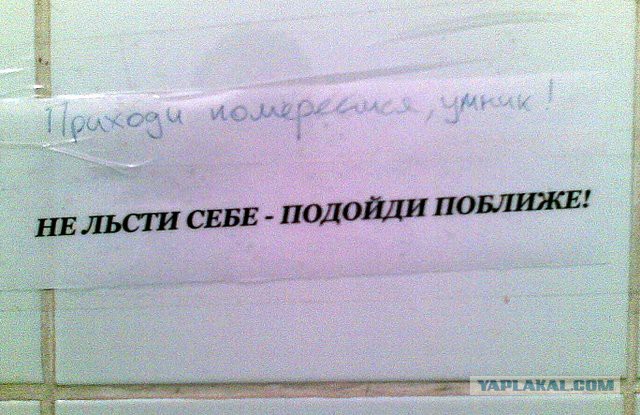 Приходи померяемся, умник!
НЕ ЛЬСТИ СЕБЕ - ПОДОЙДИ ПОБЛИЖЕ!
YAPLAKAL.COM